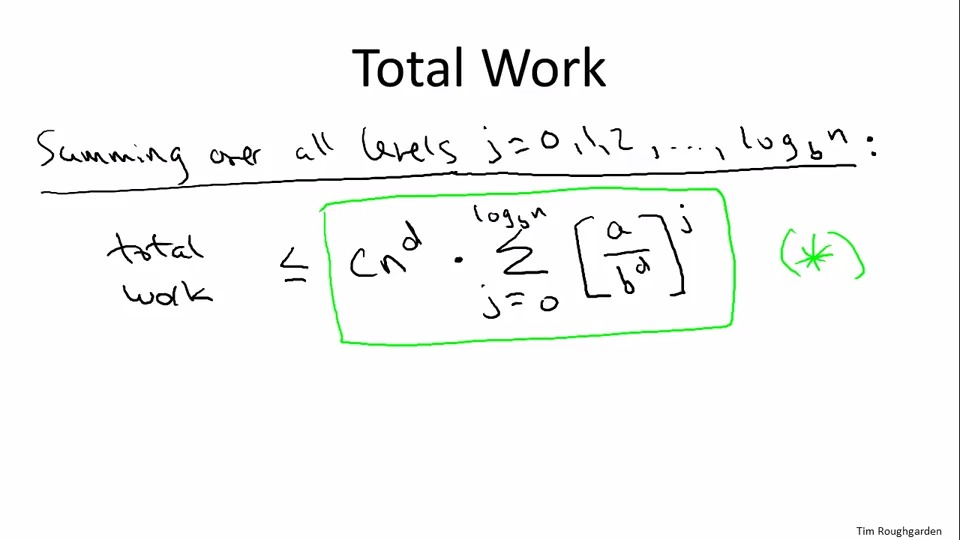 Total Work
Summing over all levels j = 0, 1, 2, ..., log_b n :
total work ≤ cn^d · ∑_{j=0}^{log_b n} [a/b^d]^j (*)
Tim Roughgarden